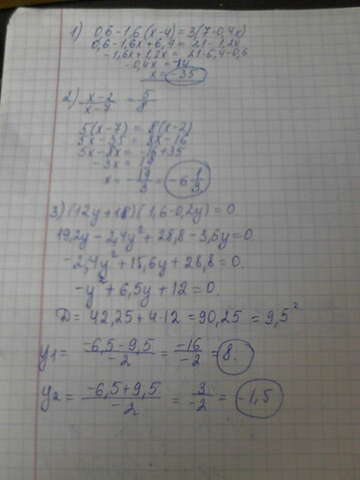 1) 0,6-1,6(x-4)=3(7-0,4x)
0,6-1,6x+6,4=21-1,2x
-1,6x+1,2x=21-6,4-0,6
-0,4x=14
x=-35
2) x-2/x-7 = 5/8
5(x-7)=8(x-2)
5x-35=8x-16
5x-8x=-16+35
-3x=19
x=-19/3=-6 1/3
3) (12y+18)(1,6-0,2y)=0
19,2y-2,4y²+28,8-3,6y=0
-2,4y²+15,6y+28,8=0
-y²+6,5y+12=0
D=42,25+4·12=90,25=9,5²
y1= -6,5-9,5/-2 = -16/-2 = 8.
y2= -6,5+9,5/-2 = 3/-2 = -1,5